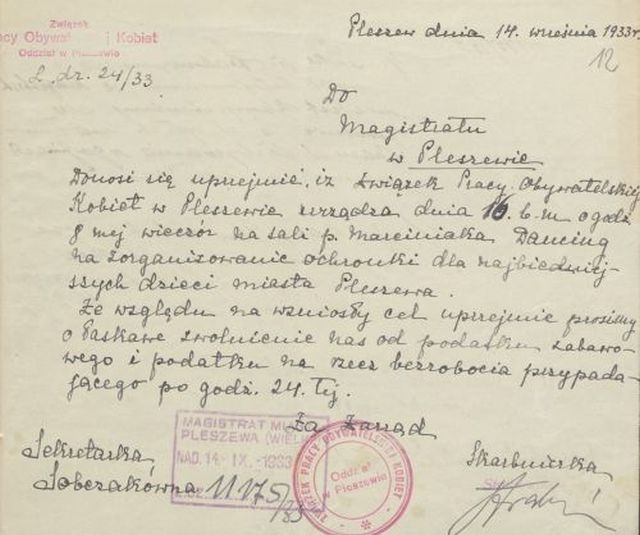 Związek
Pracy Obywatelskiej Kobiet
Oddział w Pleszewie
L. dz. 24/33
Pleszew dnia 14. września 1933 r.
12
Do
Magistratu
w Pleszewie
Donosi się uprzejmie, iż Związek Pracy Obywatelskiej
Kobiet w Pleszewie urządza dnia 16. b. m o godz.
8 mej wieczór na sali p. Marciniaka Dancing
na zorganizowanie ochronki dla najbiedniej-
szych dzieci miasta Pleszewa.
Ze względu na wzniosły cel uprzejmie prosimy
o łaskawe zwolnienie nas od podatku zabawo-
wego i podatku na rzecz bezrobocia przypada-
jącego po godz. 24. tej.
Za Zarząd
MAGISTRAT
PLESZEWA (WIELK
NAD. 14 · IX. - 1933
11175/33
ZWIĄZEK PRACY OBYWATELSKIEJ KOBIET
Oddział
w Pleszewie
Sekretarka
Sobczakówna
Skarbniczka